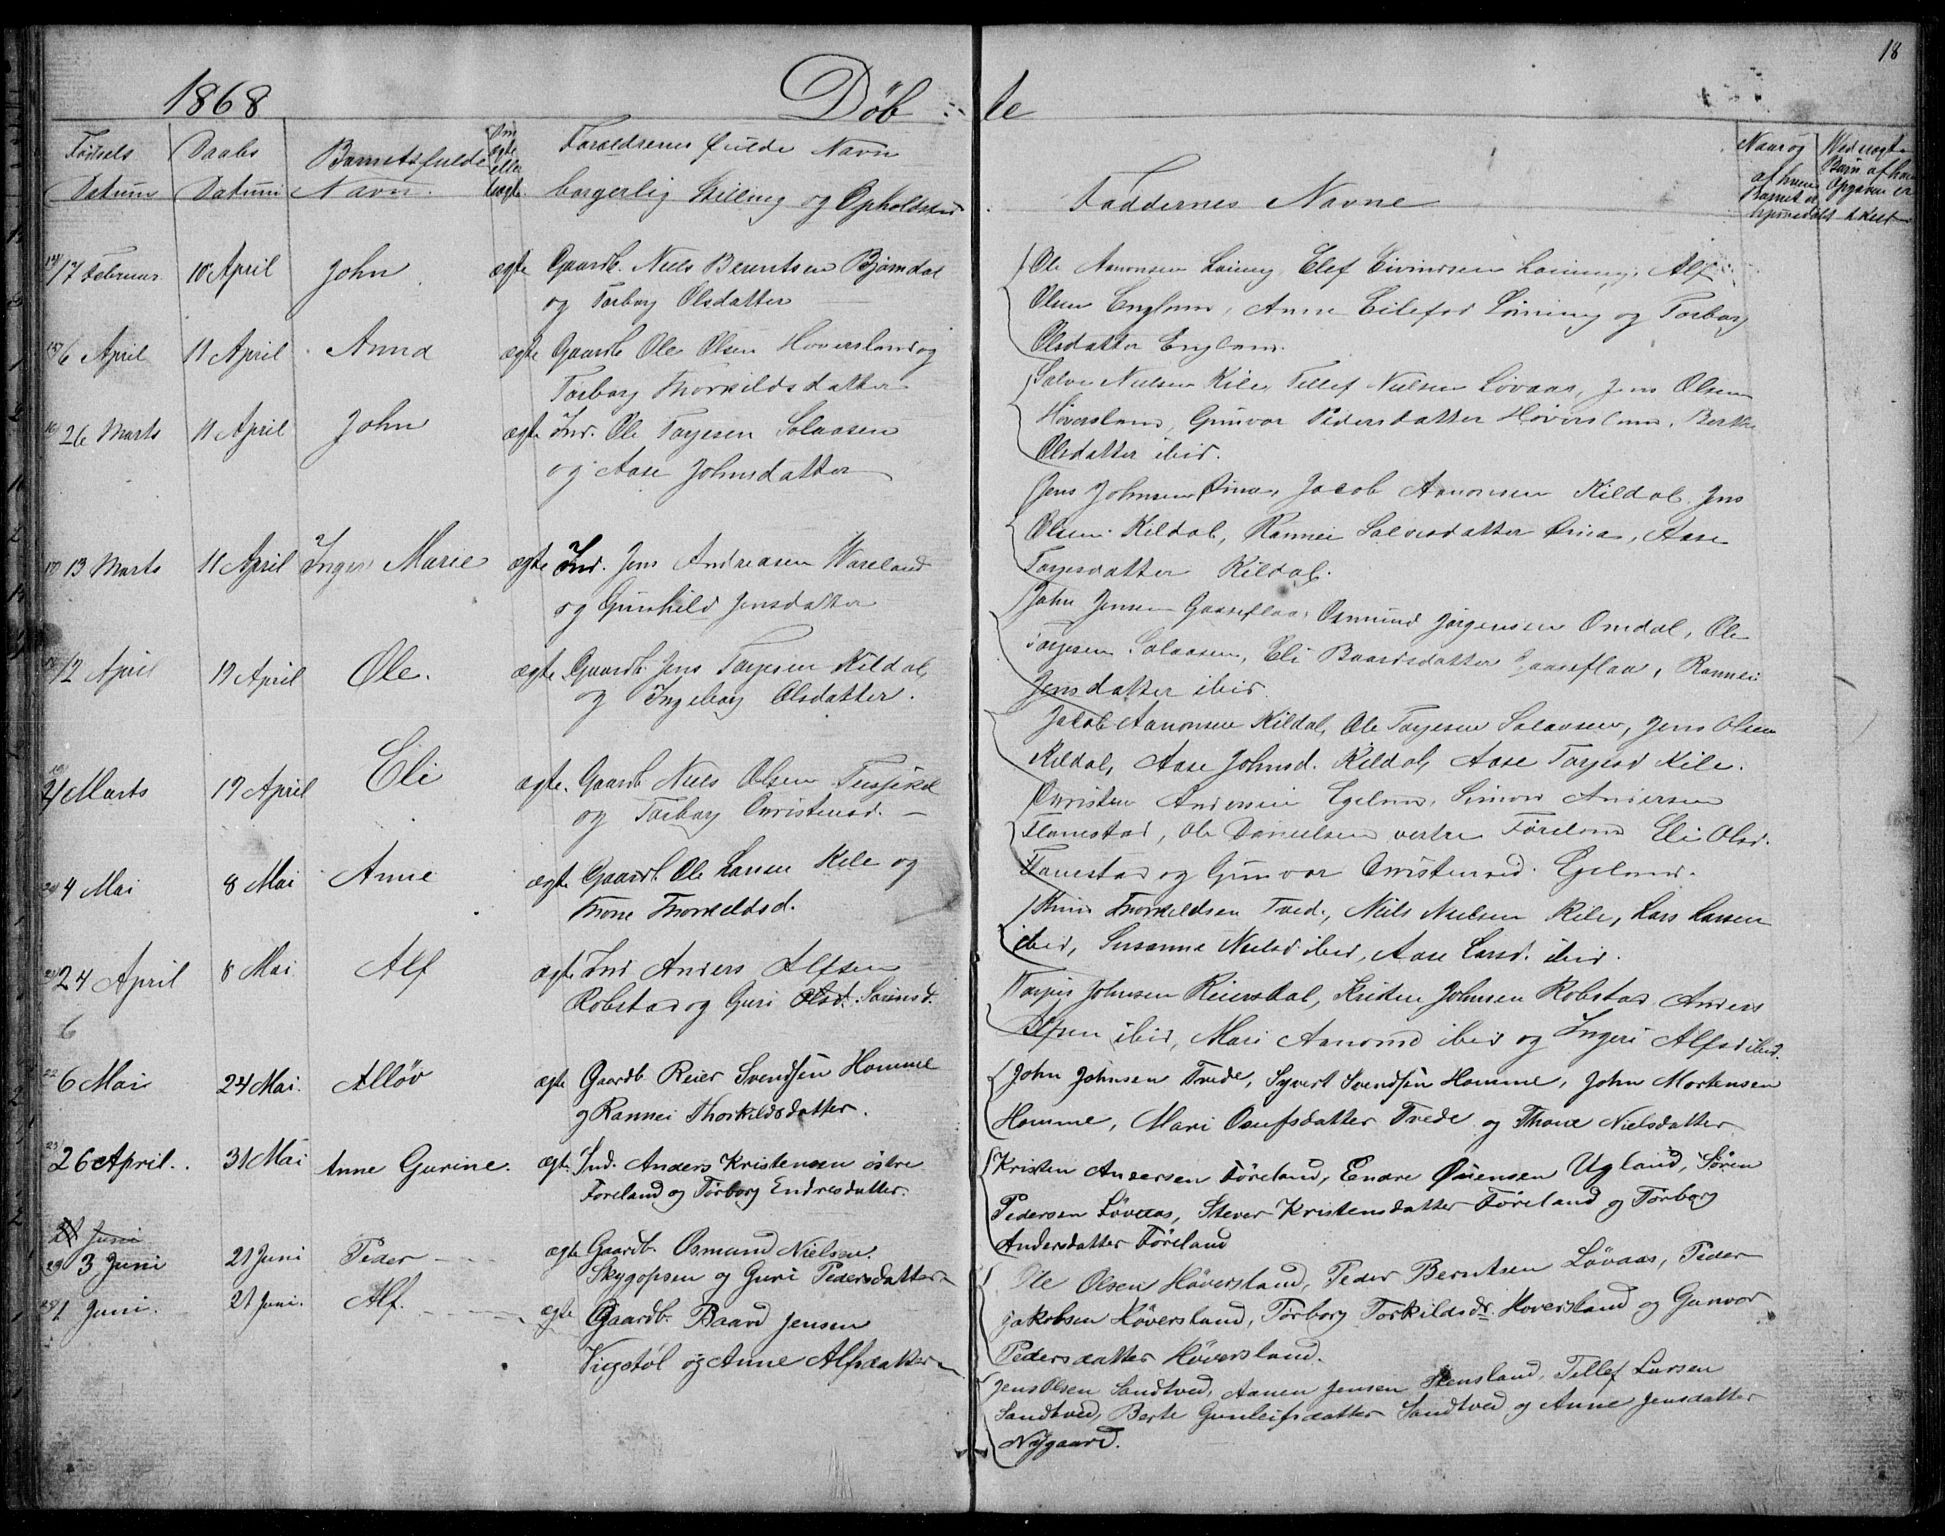 18
1868 Døb te
Fødsels Daabs Barnets fulde Om ægte eller uægte Forældrenes Fulde Navn
Datum Datum Navn. borgerlig Stilling og Opholdsted
Faddernes Navne
Naar og af hvem Barnet er
14/ 17 Februar 10 April John ægte Gaardb. Niels Berntsen Bjørndal
og Torborg Olsdatter
15/ 6 April 11 April Anna ægte Gaardb Ole Olsen Hoversland og
Torborg Thorkildsdatter
16/ 26 Marts 11 April John ægte Ind. Ole Tarjesen Solaasen
og Aase Johnsdatter
17/ 13 Marts 11 April Inger Marie ægte Ind. Jens Andreasen Wareland
og Gunhild Jensdatter
18/ 12 April 19 April Ole. ægte Gaardb. Jens Tarjesen Kildal
og Ingeborg Olsdatter.
19/ 21 Marts 19 April Eli ægte. Gaardb Niels Olsen
og Torborg Christensd. —
20/ 4 Mai 8 Mai Anne ægte Gaardb. Ole Larsen Kile og
Thone Thorkeldsd.
21/ 24 April 8 Mai Alf ægte Ind Anders Alfsen
Robstad og Guri Olsd. Sørensd.
6
22 6 Mai 24 Mai. Alløv ægte Gaardb. Reier Svendsen Homme
og Rannei Thorkildsdatter.
23/ 26 April. 31 Mai Anne Gurine. ægte. Ind. Anders Kristensen østre
Føreland og Torborg Endresdatter.
21 Juni
3 Juni 21 Juni Peder ægte Gaardb. Osmund Nielsen
Skygopsen og Guri Pedersdatter
1 Juni. 21 Juni. Alf. ægte Gaardb. Baard Jensen
Vigstøl og Anne Alfsdatter
Ole Aanonsen Løining, Elef Eivindsen Løining, Alf
Olsen England, Anne Eilefsd Løining og Torborg
Olsdatter England.
Salve Nielsen Kile, Tellef Nielsen Løvaas, Jens Olsen
Høversland, Gunvor Pedersdatter Høversland, Berthe
Olsdatter ibid.
Jens Johnsen Jacob Aanonsen Kildal Jens
Olsen Kildal, Rannei Salvesdatter Aase
Tarjesdatter Kildal.
John Jensen Gaaseflaa, Osmund Jørgensen Omdal, Ole
Tarjesen Solaasen, Eli Baardsdatter Gaaseflaa, Rannei
Jensdatter ibid.
Jacob Aanonsen Kildal, Ole Tarjesen Solaasen, Jens Olsen
Kildal, Aase Johnsd. Kildal, Aase Tarjesd Kile.
Christen Andersen Egeland, Simon Andersen
Flanestad, Ole Danielsen vestre Føreland Eli Olsd.
Flanestad og Gunvor Christensd. Egeland.
Thorkeldsen Tved, Niels Nielsen Kile, Lars Larsen
ibid, Susanna Nielsd ibid, Aase Larsd. ibid.
Tarjus Johnsen Reiersdal, Kristen Johnsen Robstad Anders
Alfsen ibid, Mari Aanonsd ibid og Ingeri Alfsd ibid.
John Johnsen Trede, Syvert Svendsen Homme, John Mortensen
Homme, Mari Osufsdatter Trede og Thone Nielsdatter
Kristen Andersen Føreland, Endre Øiensen Ugland, Søren
Pedersen Løvaas, Stener Kristensdatter Føreland og Torborg
Andersdatter Føreland
Ole Olsen Høversland, Peder Berntsen Løvaas, Peder
Jakobsen Høversland, Torborg Torkildsdr. Hoversland og Gunvor
Pedersdatter Høversland.
Jens Olsen Sandtved, Aanen Jensen Stensland, Tellef Larsen
Sandtved, Berte Gunleifsdatter Sandtved og Anne Jensdatter
Nygaard.